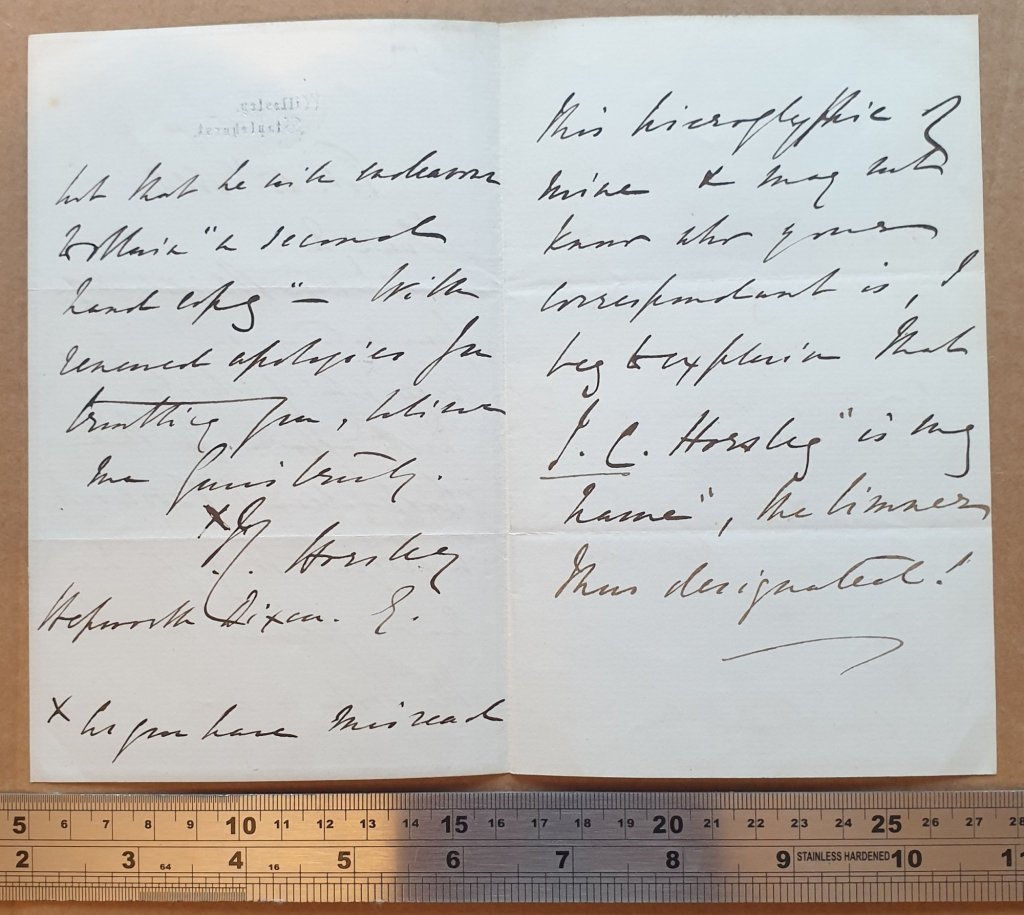 Willesley,
Staplehurst.
but that he will endeavour
to obtain "a second
hand copy" – With
renewed apologies for
troubling you, believe
me yours truly.
x J. C. Horsley
Hepworth Dixon. E.
x As you have misread
this hieroglyphic of
mine & may not
know who your
correspondent is, I
beg to explain that
J. C. Horsley "is my
name", the limner
thus designated!
5 6 7 8 9 10 11 12 13 14 15 16 17 18 19 20 21 22 23 24 25 26 27 28
2 3 64 4 16 5 6 7 8 9 STAINLESS HARDENED 10 1